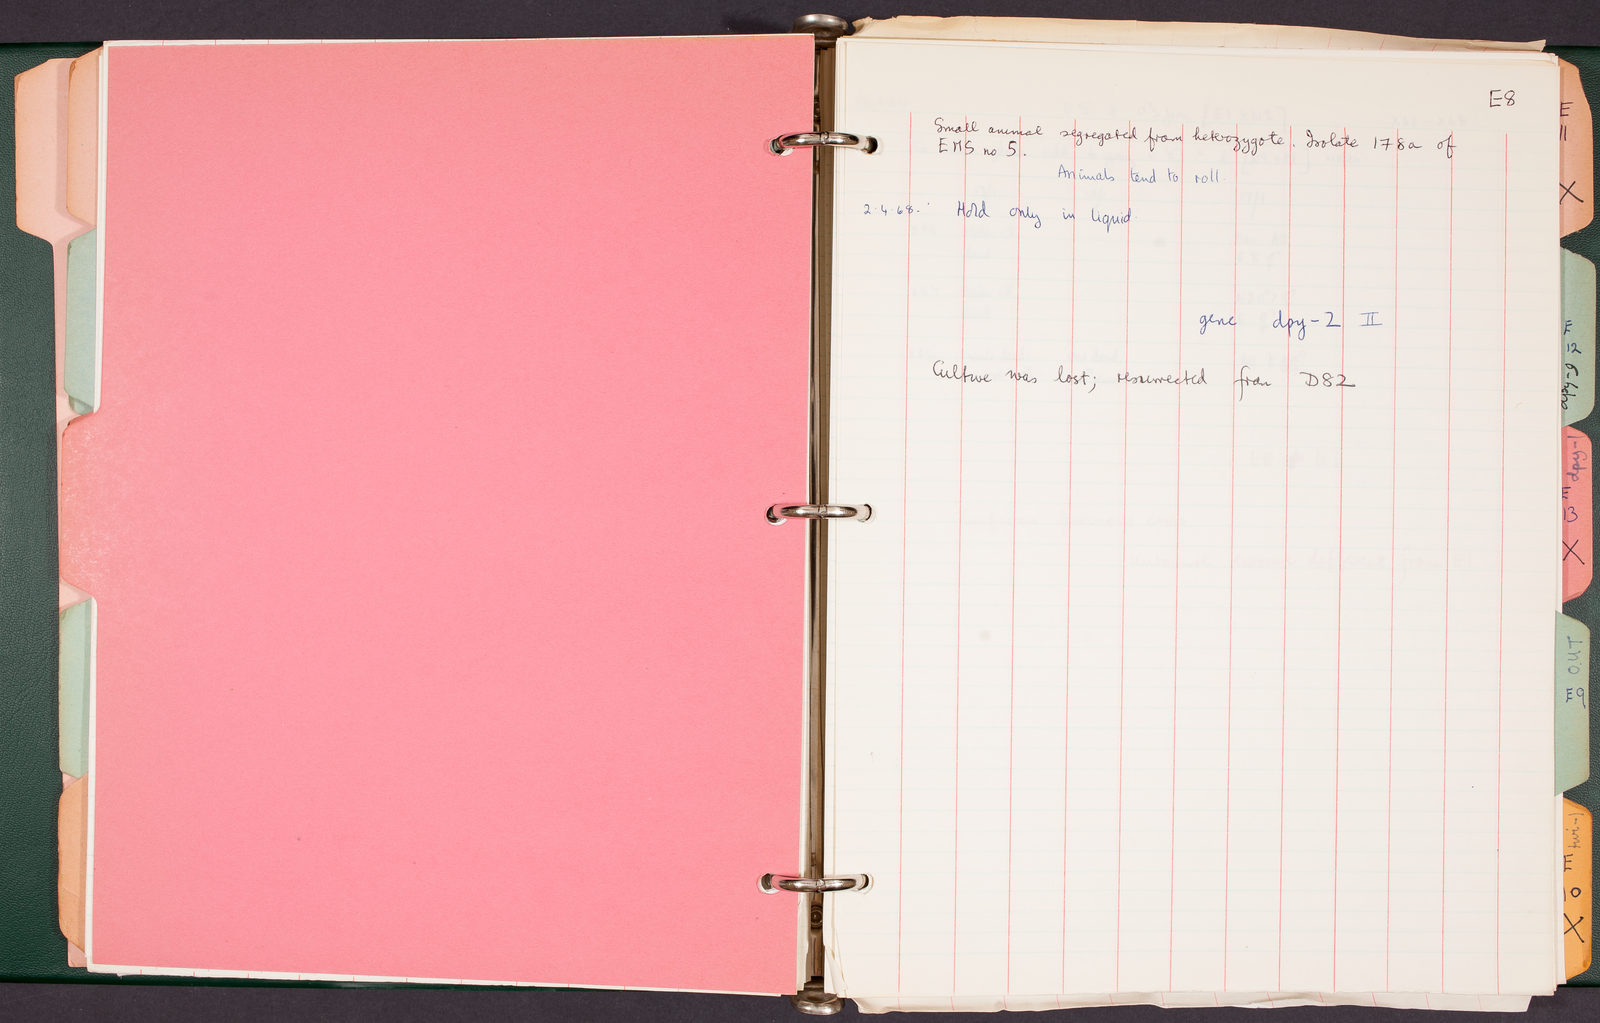 E8
Small animal segregated from heterozygote. Isolate 178a of
EMS no 5.
Animals tend to roll.
2.4.68. Hold only in liquid.
gene dpy-2 II
Culture was lost; resurrected from D82
E
11
X
E
12
dpy-9
E dpy-1
13
X
OUT
E9
E twi-1
10
X